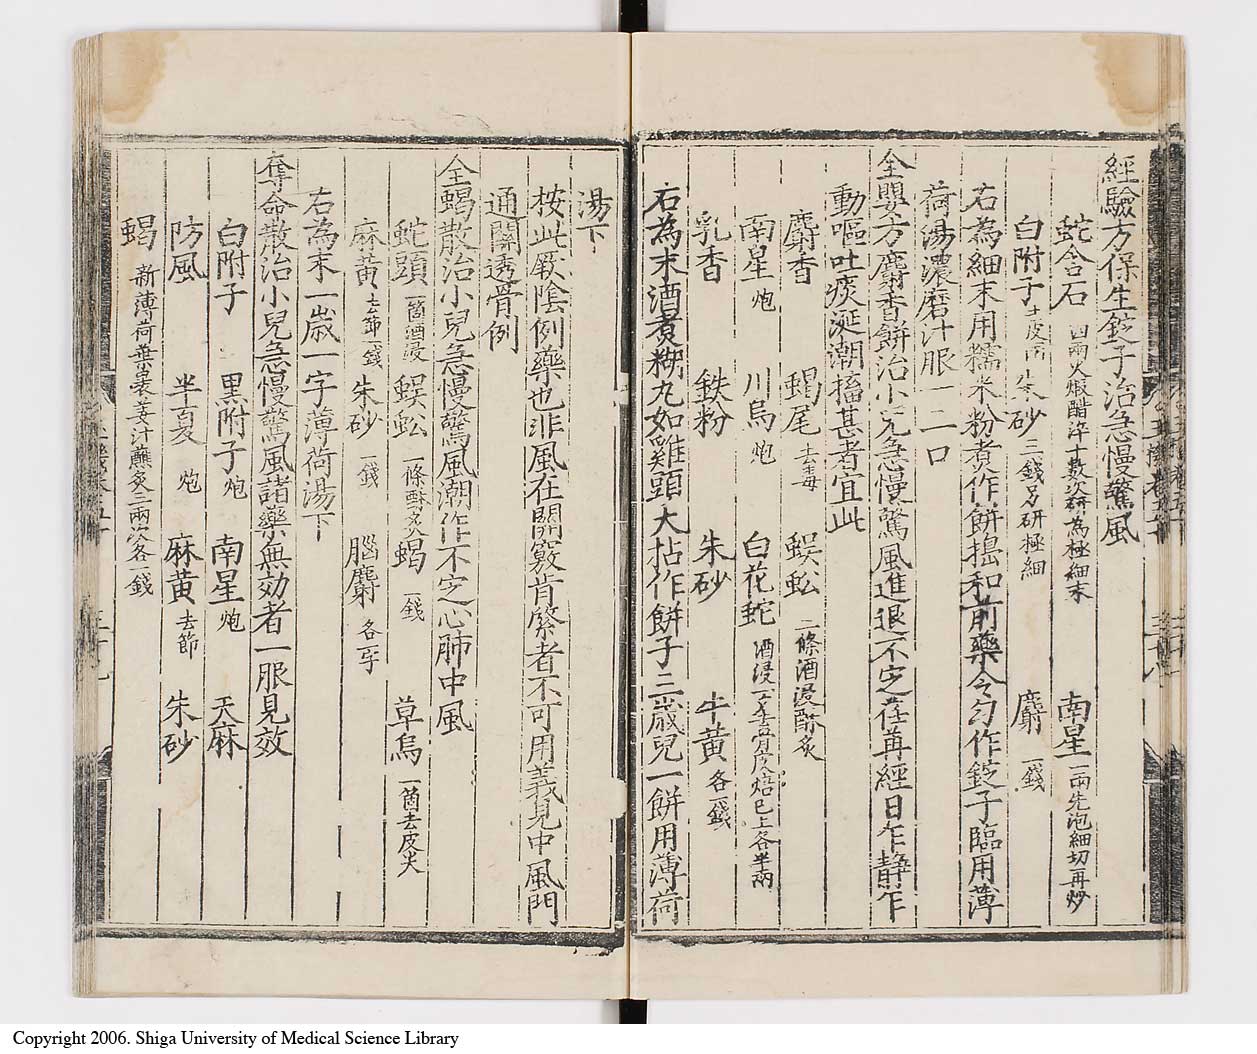 經驗方保生錠子治急慢驚風
蛇含石 四兩火煅醋淬十數次研為極細末 南星 一兩先泡細切再炒
白附子 去皮 朱砂 三錢另研極細 麝 一錢
右為細末用糯米粉煮作餅搗和前藥令勻作錠子臨用薄
荷湯濃磨汁服一二口
全嬰方麝香餅治小兒急慢驚風進退不定荏苒經日乍靜乍
動嘔吐痰涎潮搐甚者宜此
麝香 蝎尾 去毒 蜈蚣 二條酒浸酥炙
南星 炮 川烏 炮 白花蛇 酒浸一宿去皮焙已上各半兩
乳香 鉄粉 朱砂 牛黃 各一錢
右為末酒煮糊丸如雞頭大拈作餅子三歲兒一餅用薄荷
湯下
按此厥陰例藥也非風在關竅肯綮者不可用義見中風門
通關透骨例
全蝎散治小兒急慢驚風潮作不定心肺中風
蛇頭 一箇酒浸 蜈蚣 一條酥炙 蝎 一錢 草烏 一箇去皮尖
麻黃 去節一錢 朱砂 一錢 腦麝 各一字
右為末一歲一字薄荷湯下
奪命散治小兒急慢驚風諸藥無効者一服見效
白附子 黑附子 炮 南星 炮 天麻
防風 半夏 炮 麻黃 去節 朱砂
蝎 新薄荷葉裹姜汁蘸炙三兩次各一錢
Copyright 2006. Shiga University of Medical Science Library